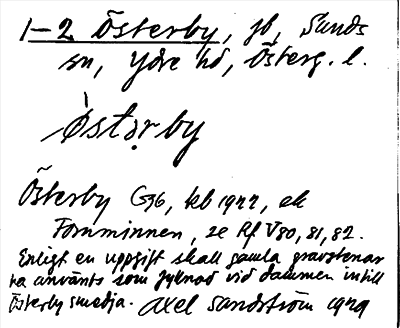 1–2 Österby, jb, Sunds
sn, Ydre hd, Österg. l.
östərby
Österby G36, kb 1922, ek
Fornminnen, se Rf V80, 81, 82.
Enligt en uppgift skall gamla gravstenar
ha använts som fyllnad vid dammen intill
Österby smedja. Axel Sandström 1929